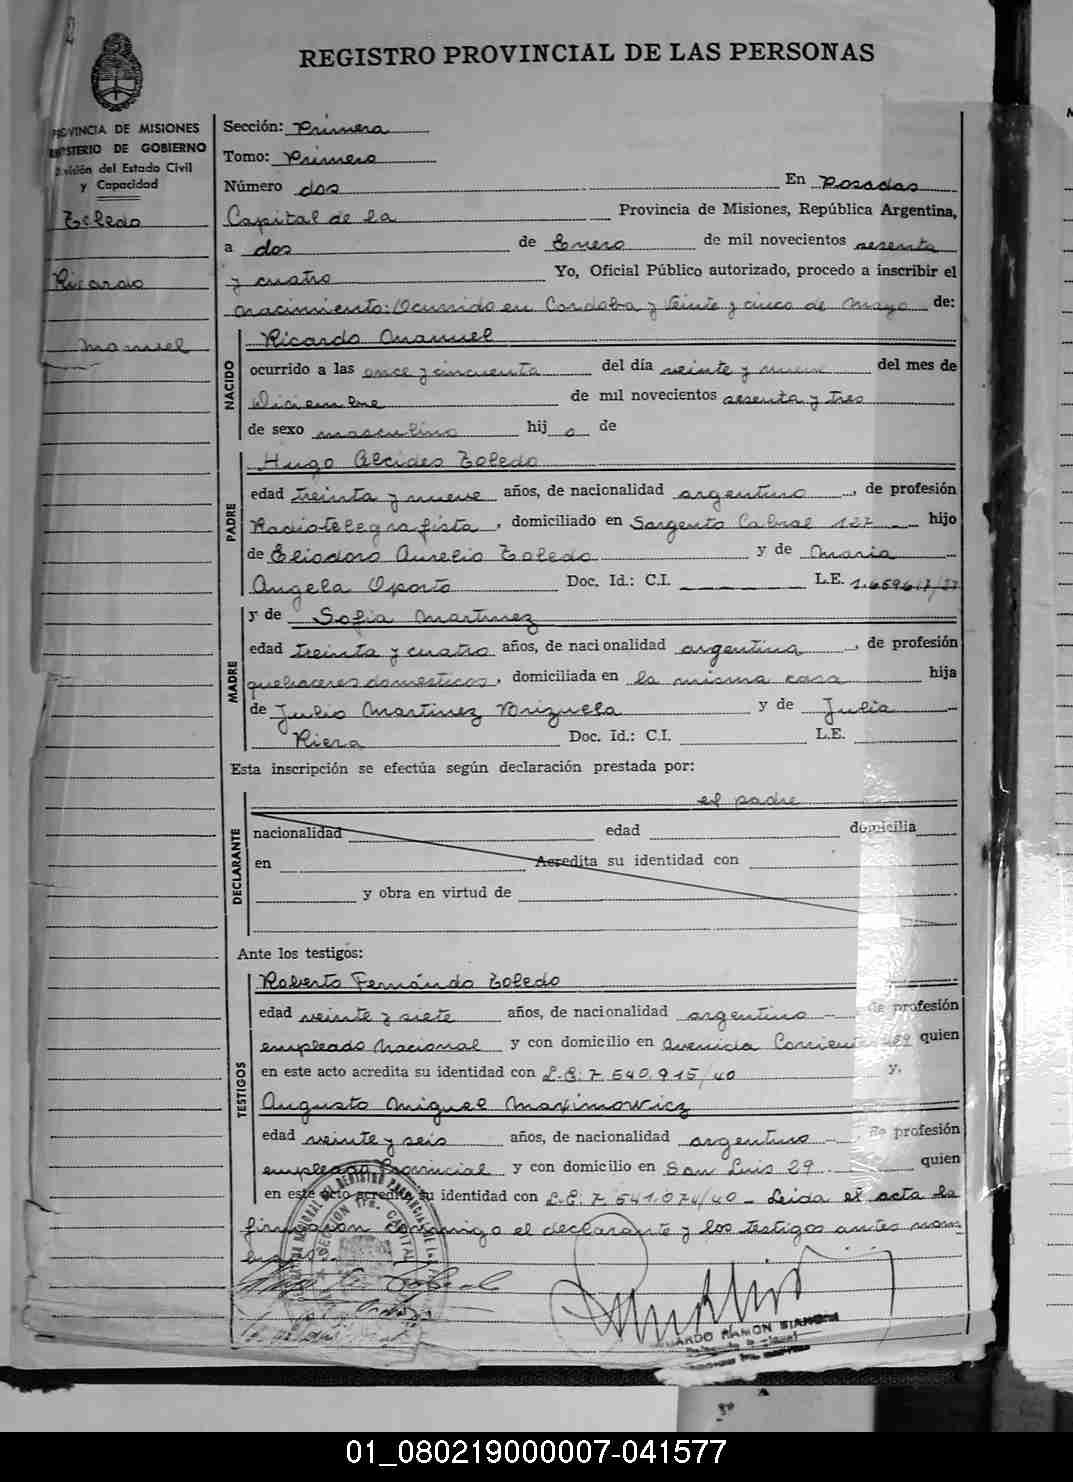 REGISTRO PROVINCIAL DE LAS PERSONAS
PROVINCIA DE MISIONES
MINISTERIO DE GOBIERNO
División del Estado Civil
y Capacidad
Toledo
Ricardo
Manuel
Sección: Primera
Tomo: Primero
Número dos En Posadas
Capital de la Provincia de Misiones, República Argentina,
a dos de Enero de mil novecientos sesenta
y cuatro Yo, Oficial Público autorizado, procedo a inscribir el
nacimiento: Ocurrido en Cordoba y Veinte y cinco de Mayo de:
NACIDO
Ricardo Manuel
ocurrido a las once y cincuenta del día veinte y nueve del mes de
Diciembre de mil novecientos sesenta y tres
de sexo masculino hij o de
PADRE
Hugo Alcides Toledo
edad treinta y nueve años, de nacionalidad argentino, de profesión
Radiotelegrafista, domiciliado en Sargento Cabral 127 hijo
de Eliodoro Aurelio Toledo y de Maria
Angela Oporto Doc. Id.: C.I. L.E.
MADRE
y de Sofia Martinez
edad treinta y cuatro años, de nacionalidad argentina, de profesión
quehaceres domesticos, domiciliada en la misma casa hija
de Julio Martinez Brizuela y de Julia
Riera Doc. Id.: C.I. L.E.
Esta inscripción se efectúa según declaración prestada por:
DECLARANTE
el padre
nacionalidad edad domicilia
en Acredita su identidad con
y obra en virtud de
Ante los testigos:
TESTIGOS
Roberto Fernándo Toledo
edad veinte y siete años, de nacionalidad argentino de profesión
empleado Nacional y con domicilio en Avenida quien
en este acto acredita su identidad con L.E: 7.540.915/40 y.
Augusto Miguel Maximowicz
edad veinte y seis años, de nacionalidad argentino de profesión
empleado Provincial y con domicilio en San Luis 29 quien
en este acto acredita su identidad con L.E: 7.541.074/40 - Leida el acta la
firmaron conmigo el declarante y los testigos antes nom
RAMON
01_080219000007-041577